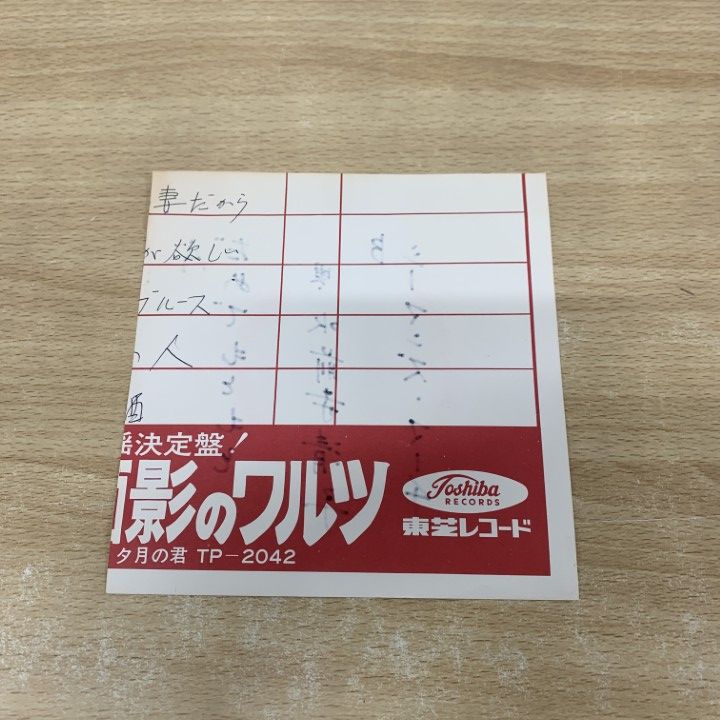 妻だから
が欲しい
ブルース
の人
酒
謡決定盤!
面影のワルツ
夕月の君 TP-2042
Toshiba
RECORDS
東芝レコード